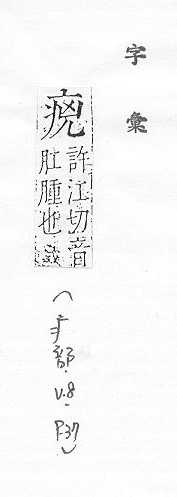 字彙
許江切音
肚腫也
(疒部. V.8. P37)